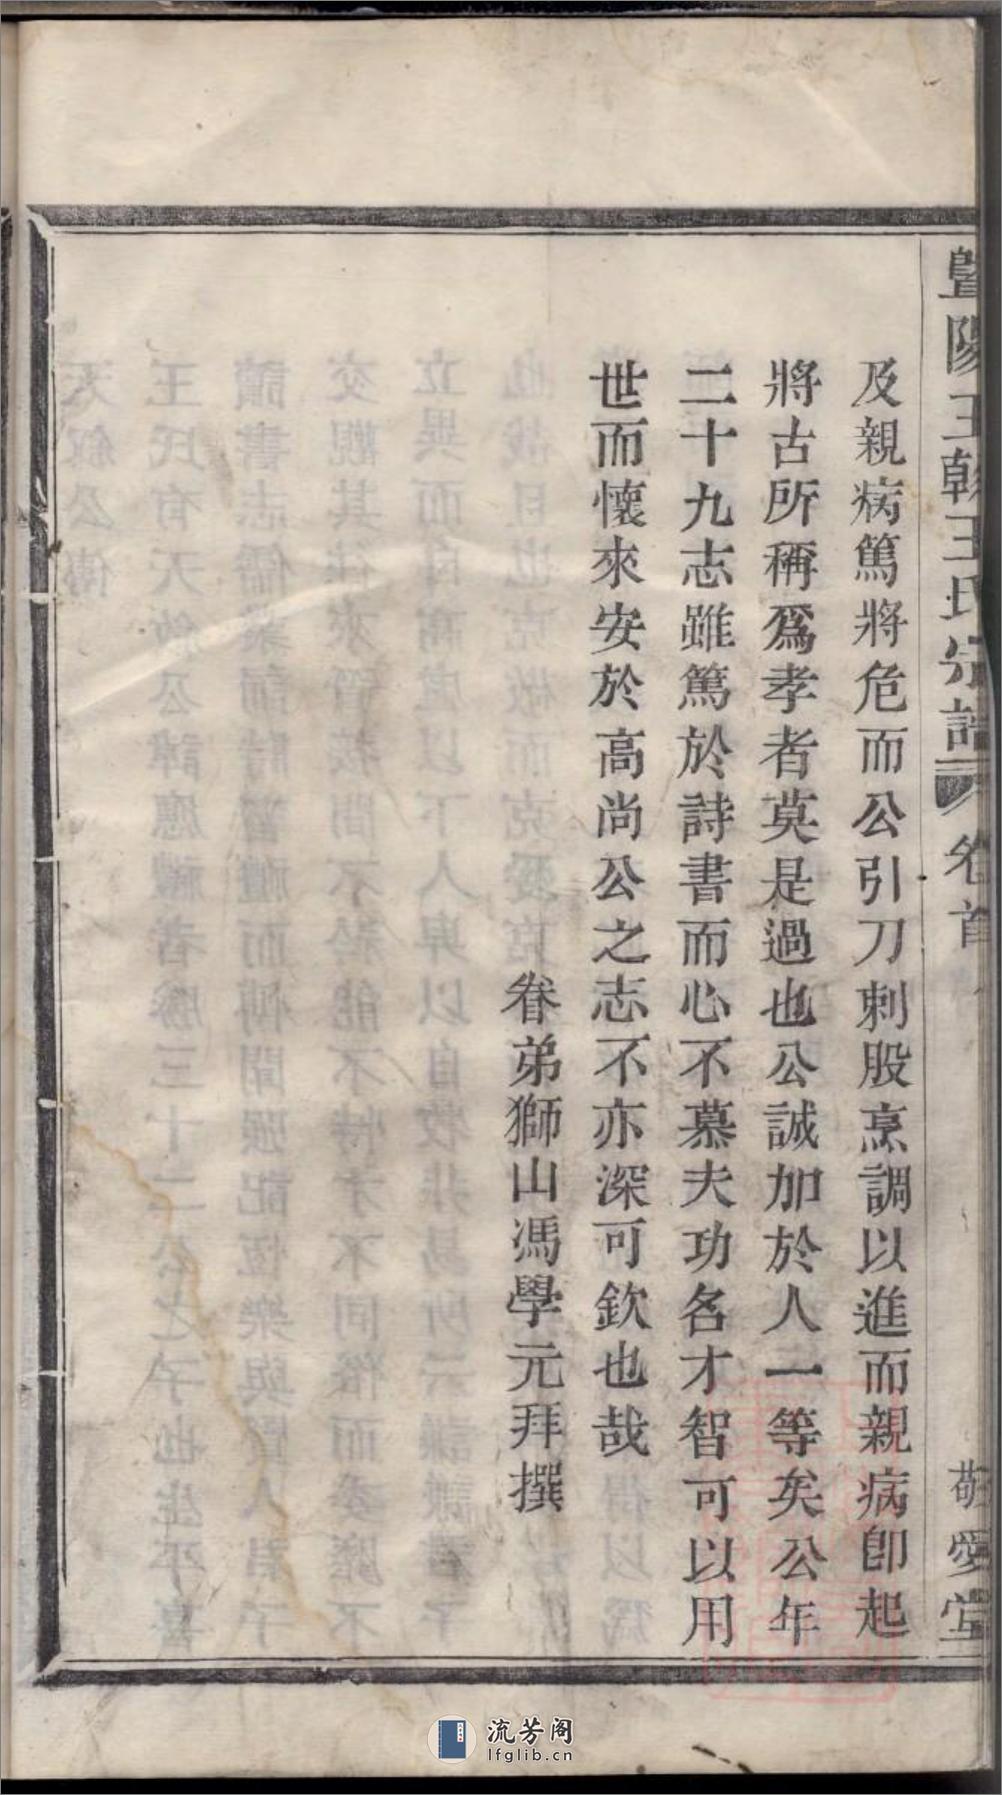 暨陽王韓王氏宗譜 卷首 敬愛堂
及親病篤將危而公引刀刺股烹調以進而親病卽起
將古所稱爲孝者莫是過也公誠加於人一等矣公年
二十九志雖篤於詩書而心不慕夫功名才智可以用
世而懷來安於高尚公之志不亦深可欽也哉
眷弟獅山馮學元拜撰
流芳阁
lfglib.cn